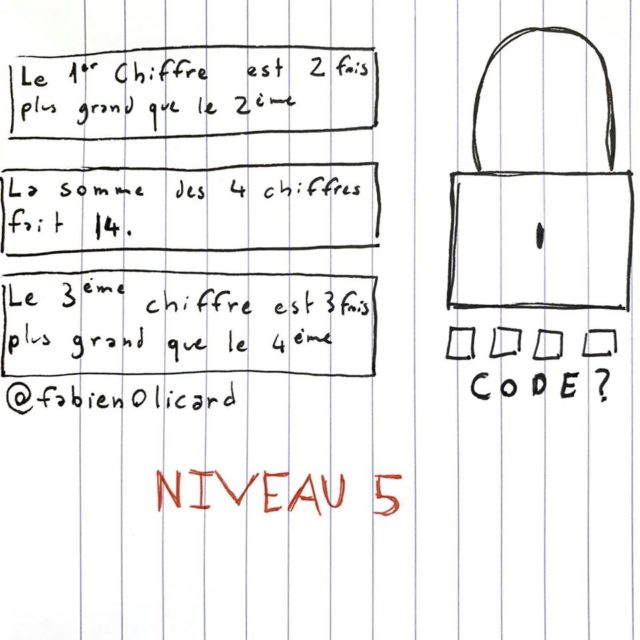 Le 1er Chiffre est 2 fois
plus grand que le 2ème
La somme des 4 chiffres
fait 14.
Le 3ème chiffre est 3 fois
plus grand que le 4ème
@fabienOlicard
CODE?
NIVEAU 5